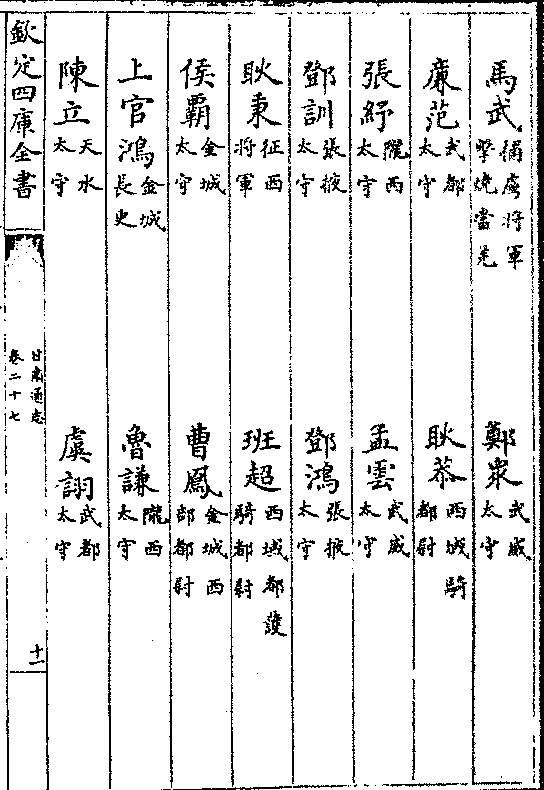 馬武 捕虜將軍擊燒當羌 鄭衆 武威太守
廉范 武都太守 耿恭 西域騎都尉
張紆 隴西太守 孟雲 武威太守
鄧訓 張掖太守 鄧鴻 張掖太守
耿秉 征西將軍 班超 西域都護騎都尉
侯霸 金城太守 曹鳳 金城西部都尉
上官鴻 金城長史 魯謙 隴西太守
陳立 天水太守 虞詡 武都太守
欽定四庫全書
甘肅通志
卷二十七
十一